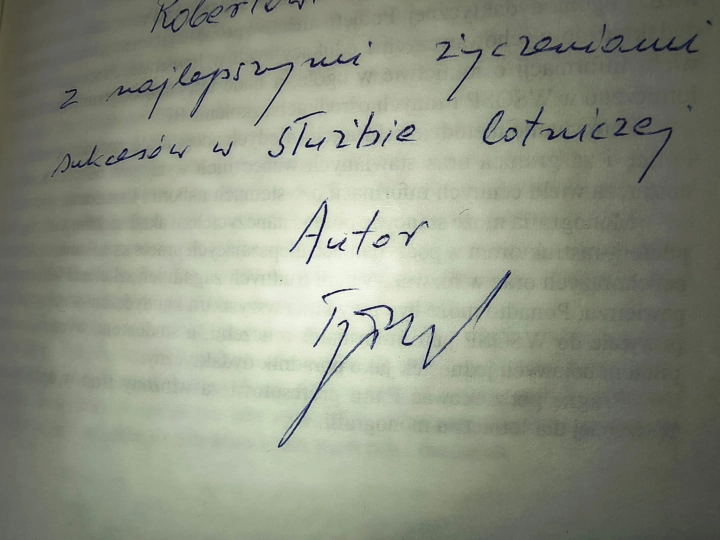 Robertowi
z najlepszymi życzeniami
sukcesów w służbie lotniczej
Autor